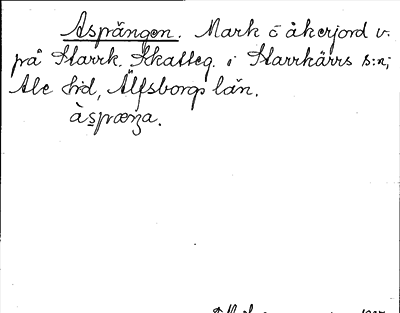 Aspången. Mark o åkerjord v.
på Starrk. Skatteg. i Starrkärrs s:n;
Ale hd, Älfsborgs län.
àspæŋa.